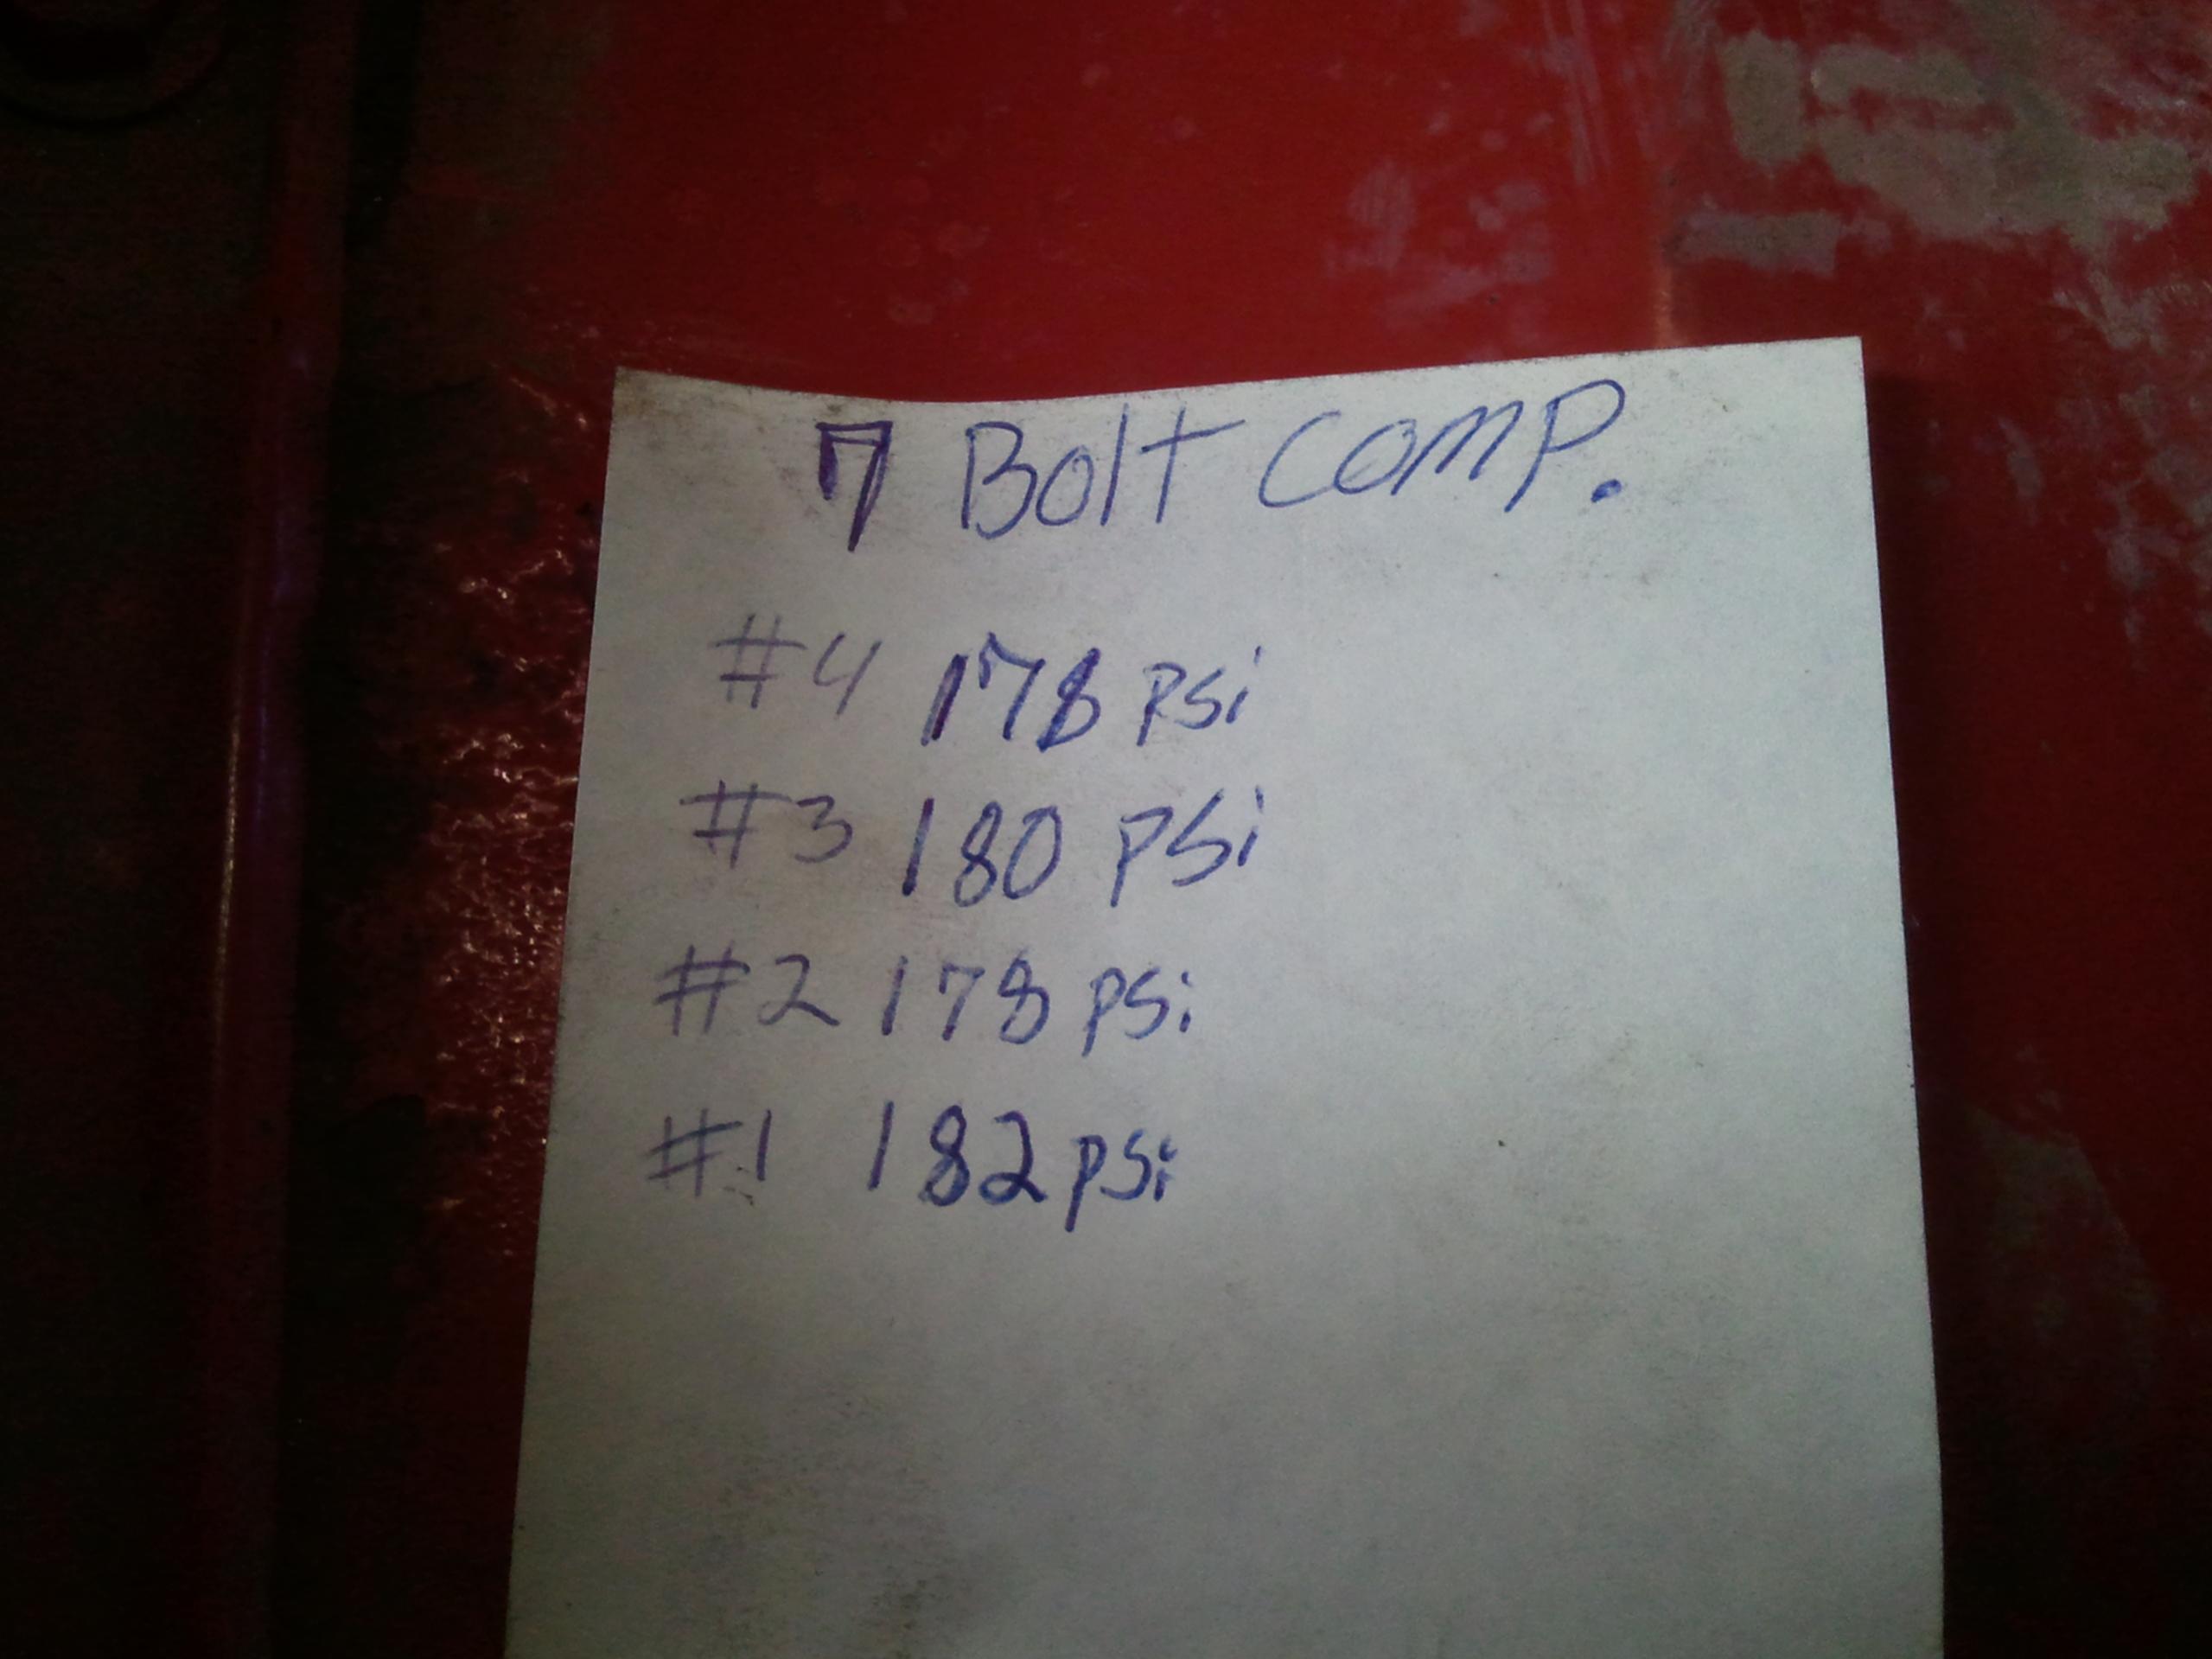 7 Bolt comp.
#4 178 psi
#3 180 psi
#2 178 psi
#1 182 psi